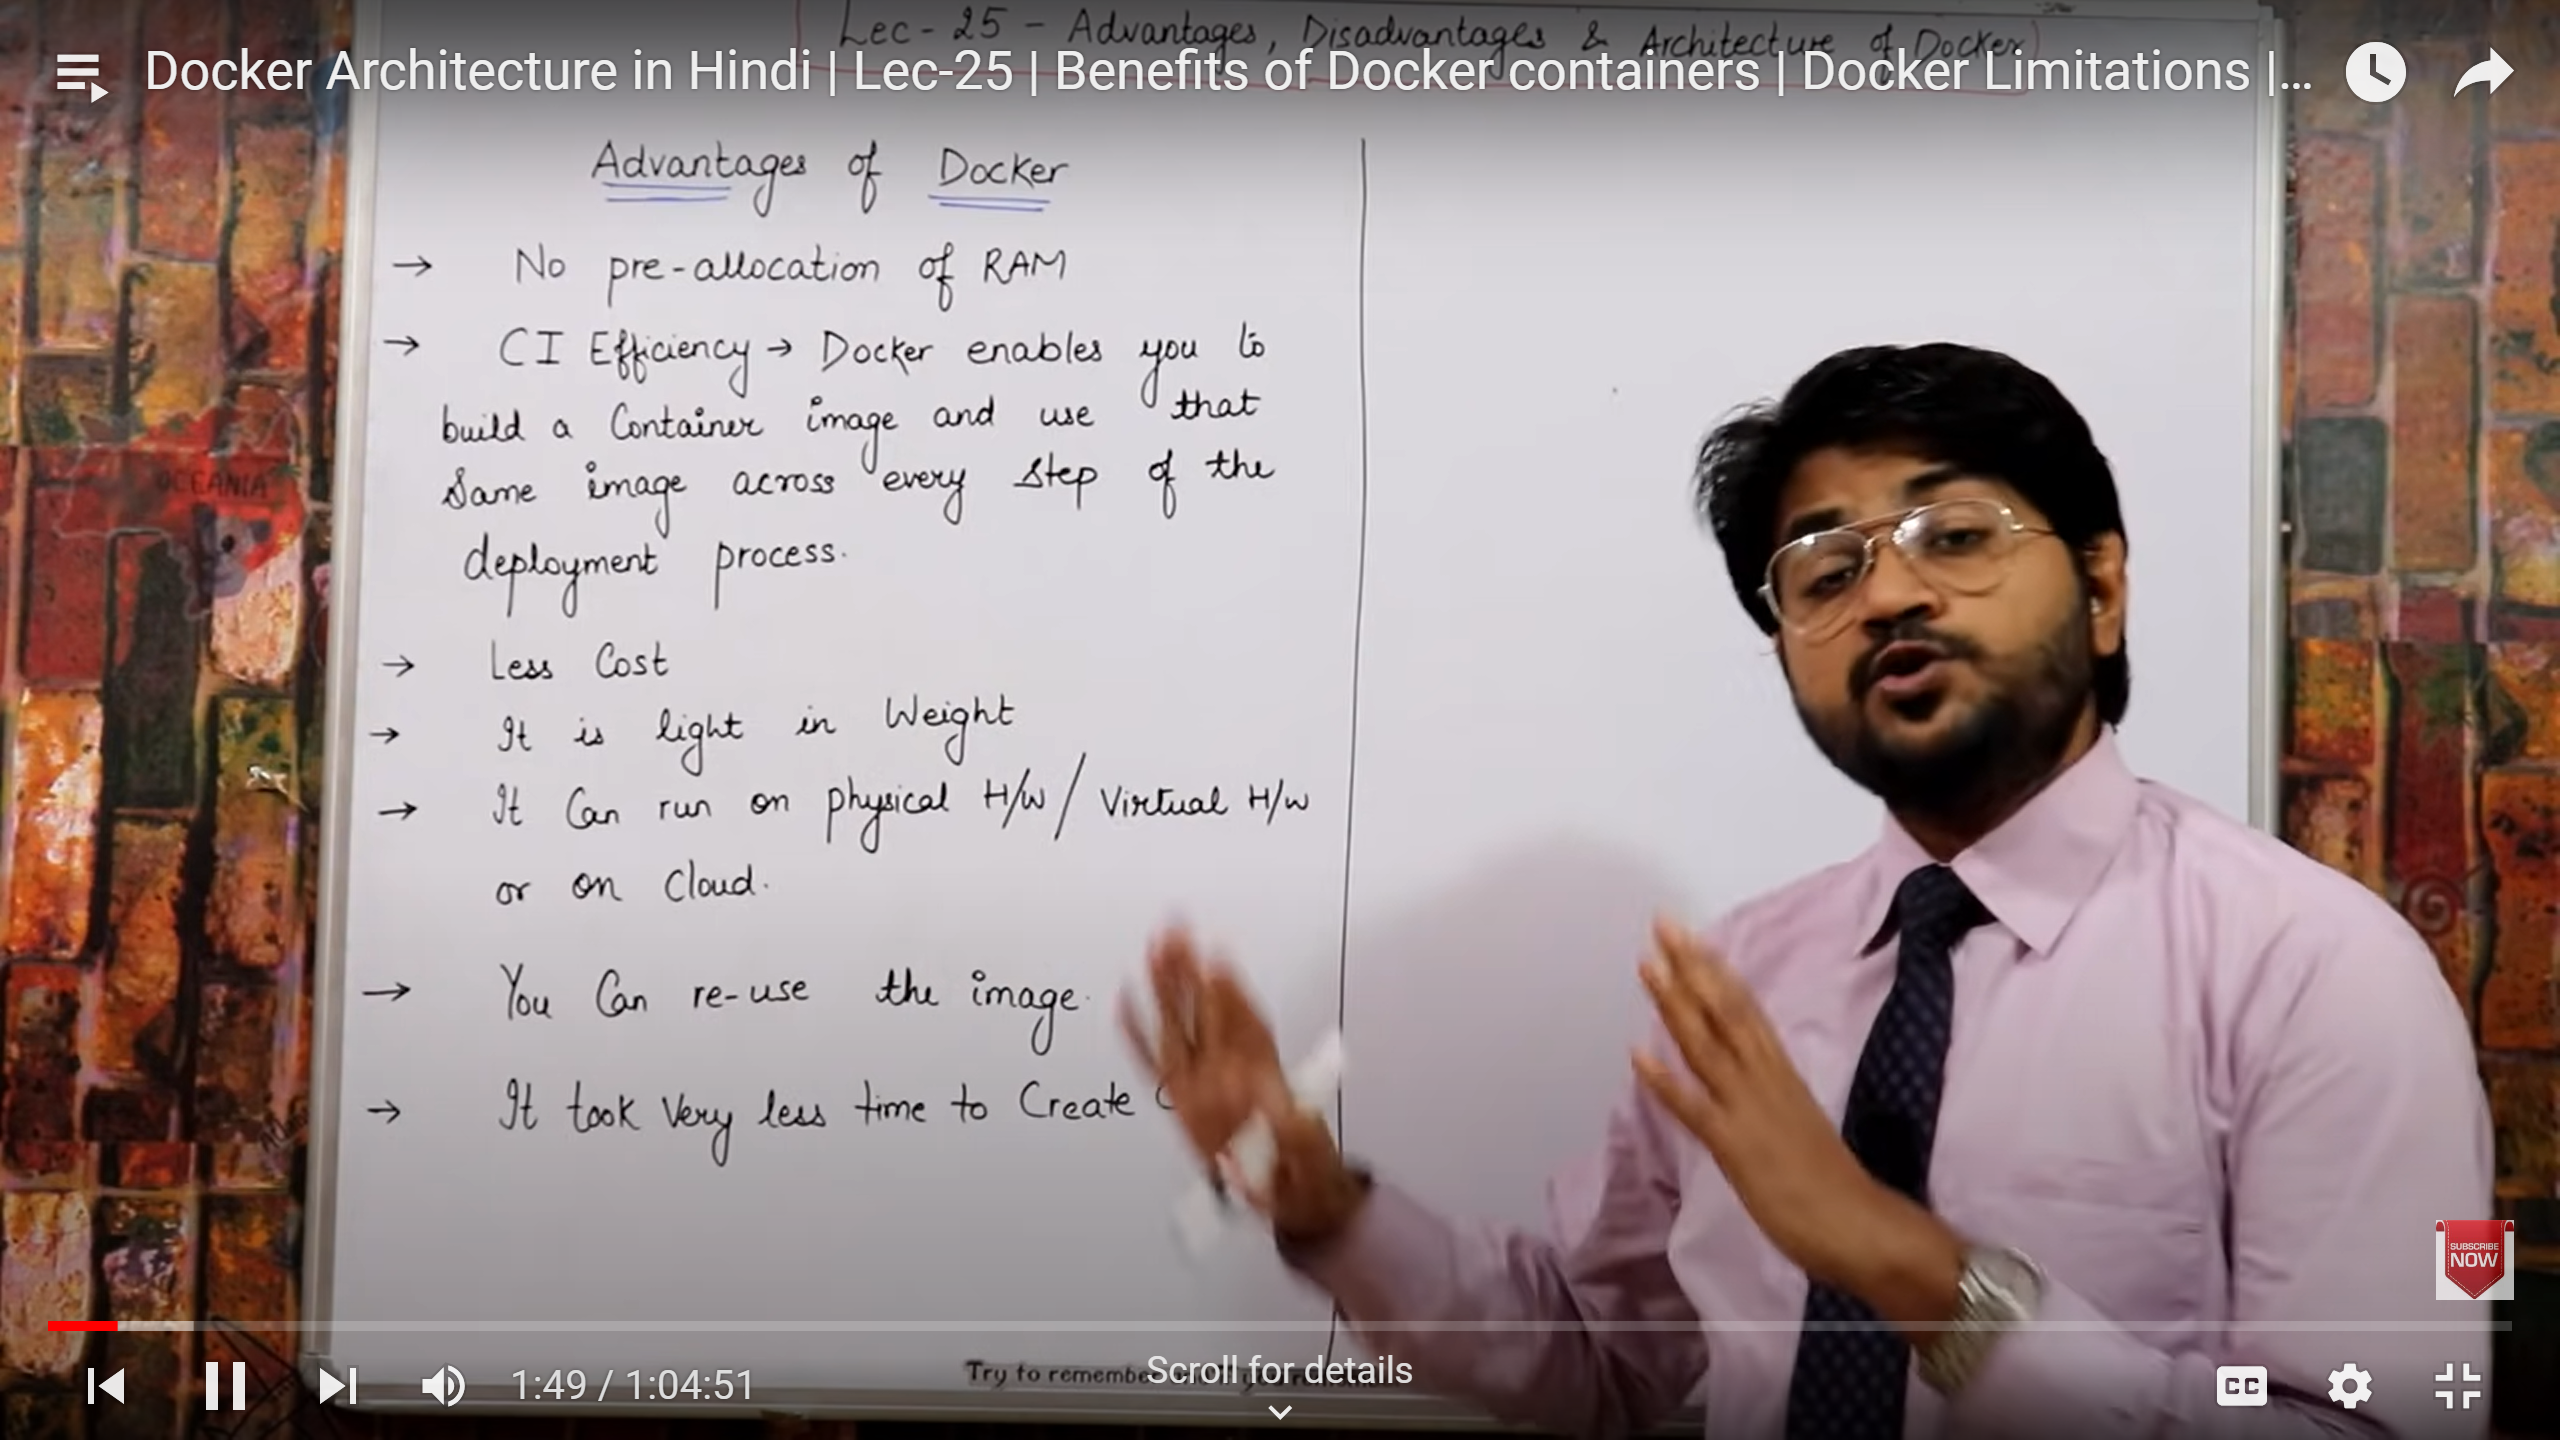 Lec - 25 - Advantages, Disadvantages & Architecture of Docker
Docker Architecture in Hindi | Lec-25 | Benefits of Docker containers | Docker Limitations |...
Advantages of Docker
→ No pre-allocation of RAM
→ CI Efficiency → Docker enables you to
build a Container image and use that
Same image across every step of the
deployment process.
OCEANIA
→ Less Cost
→ It is light in Weight
→ It Can run on physical H/W / Virtual H/W
or on Cloud.
→ You Can re-use the image.
→ It took Very less time to Create
SUBSCRIBE
NOW
Try to remember
Scroll for details
1:49 / 1:04:51
CC